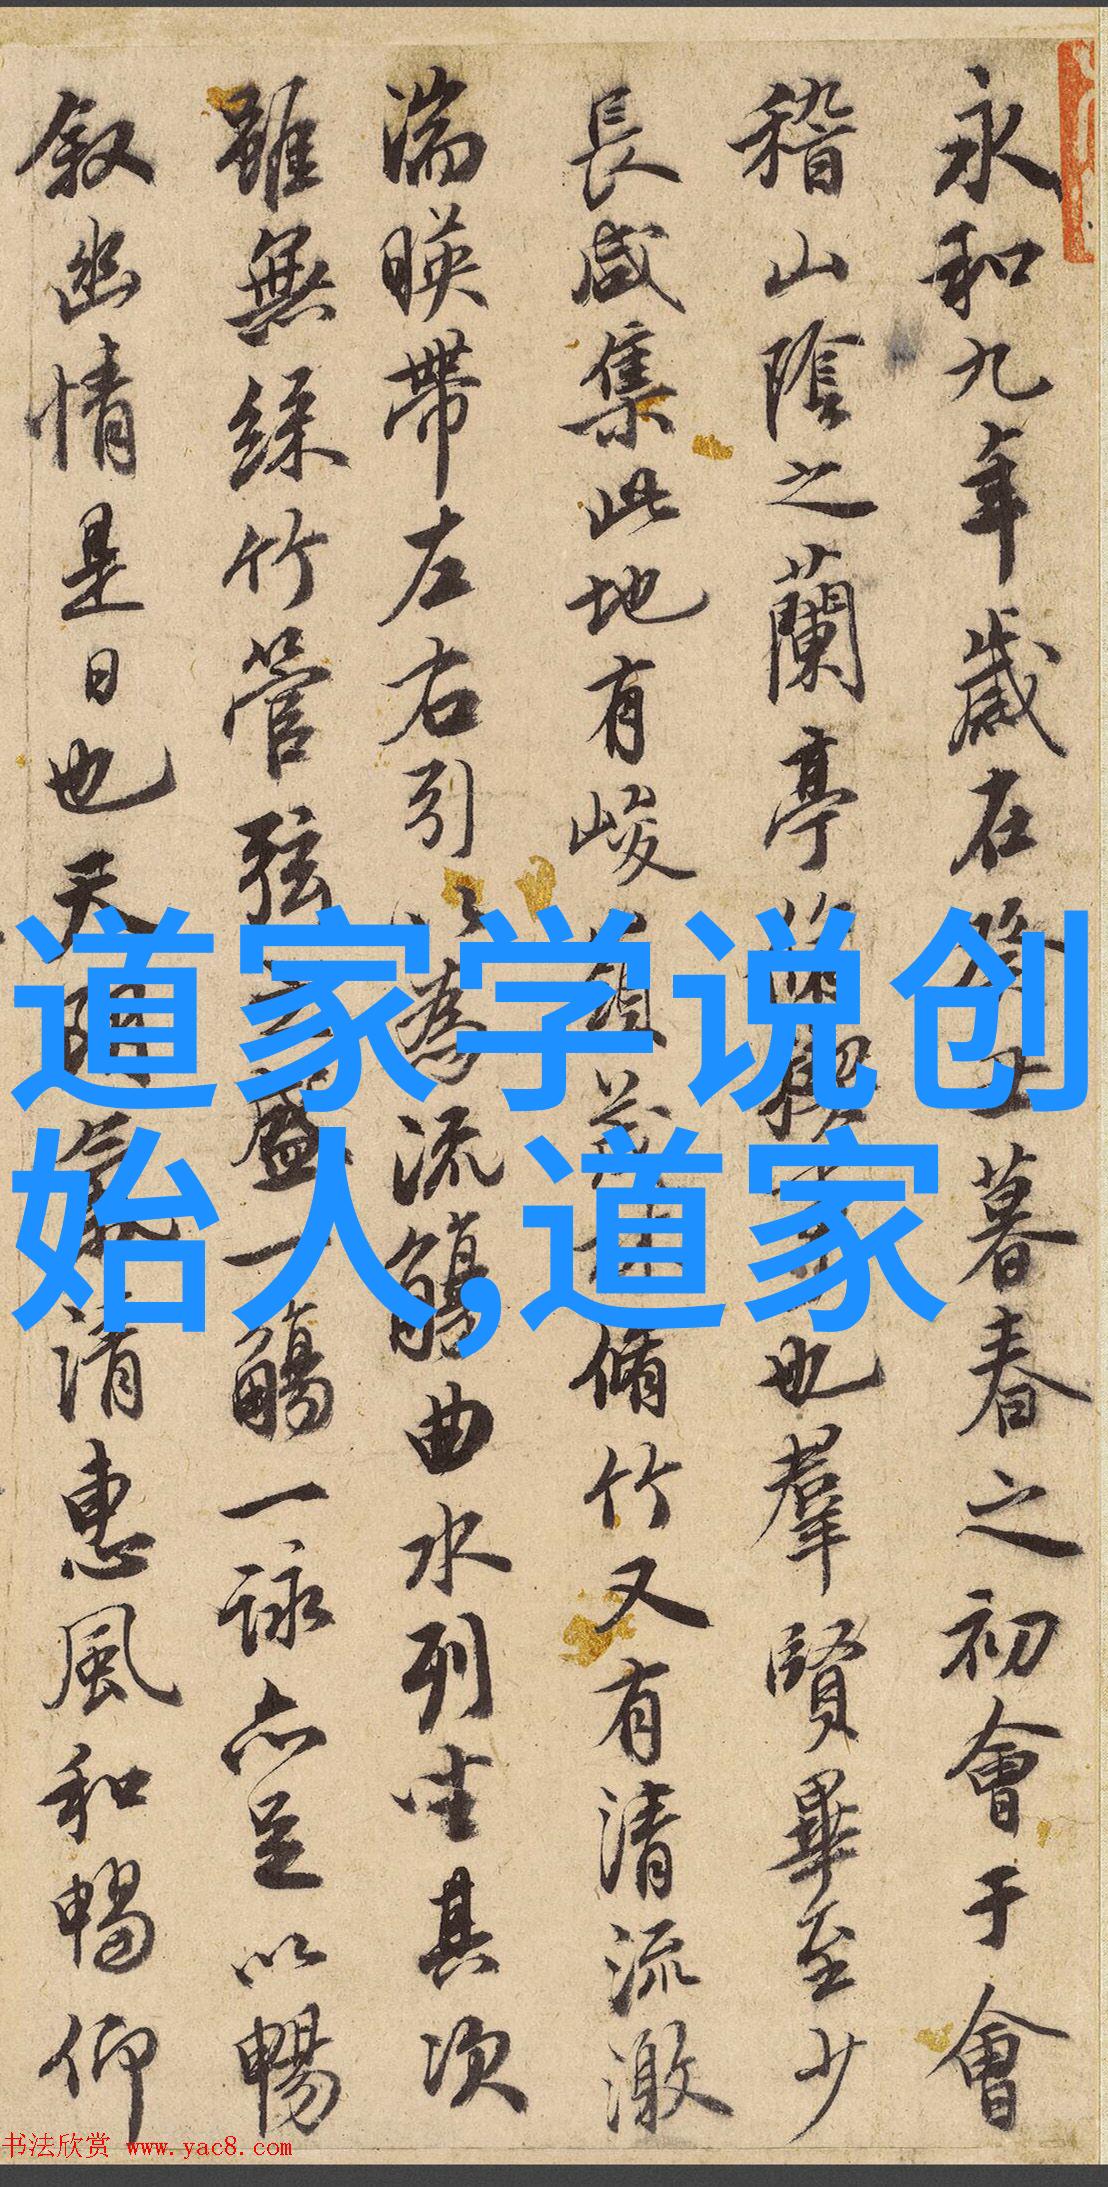 永和九年歲在癸丑暮春之初會于會
稽山陰之蘭亭脩禊事也羣賢畢至少
長咸集此地有峻領茂林脩竹又有清流激
湍暎帶左右引以為流觴曲水列坐其次
雖無絲竹管弦之盛一觴一詠亦足以暢
叙幽情是日也天朗氣清惠風和暢仰
道家学说创
始人,道家
书法欣赏 www.yac8.com